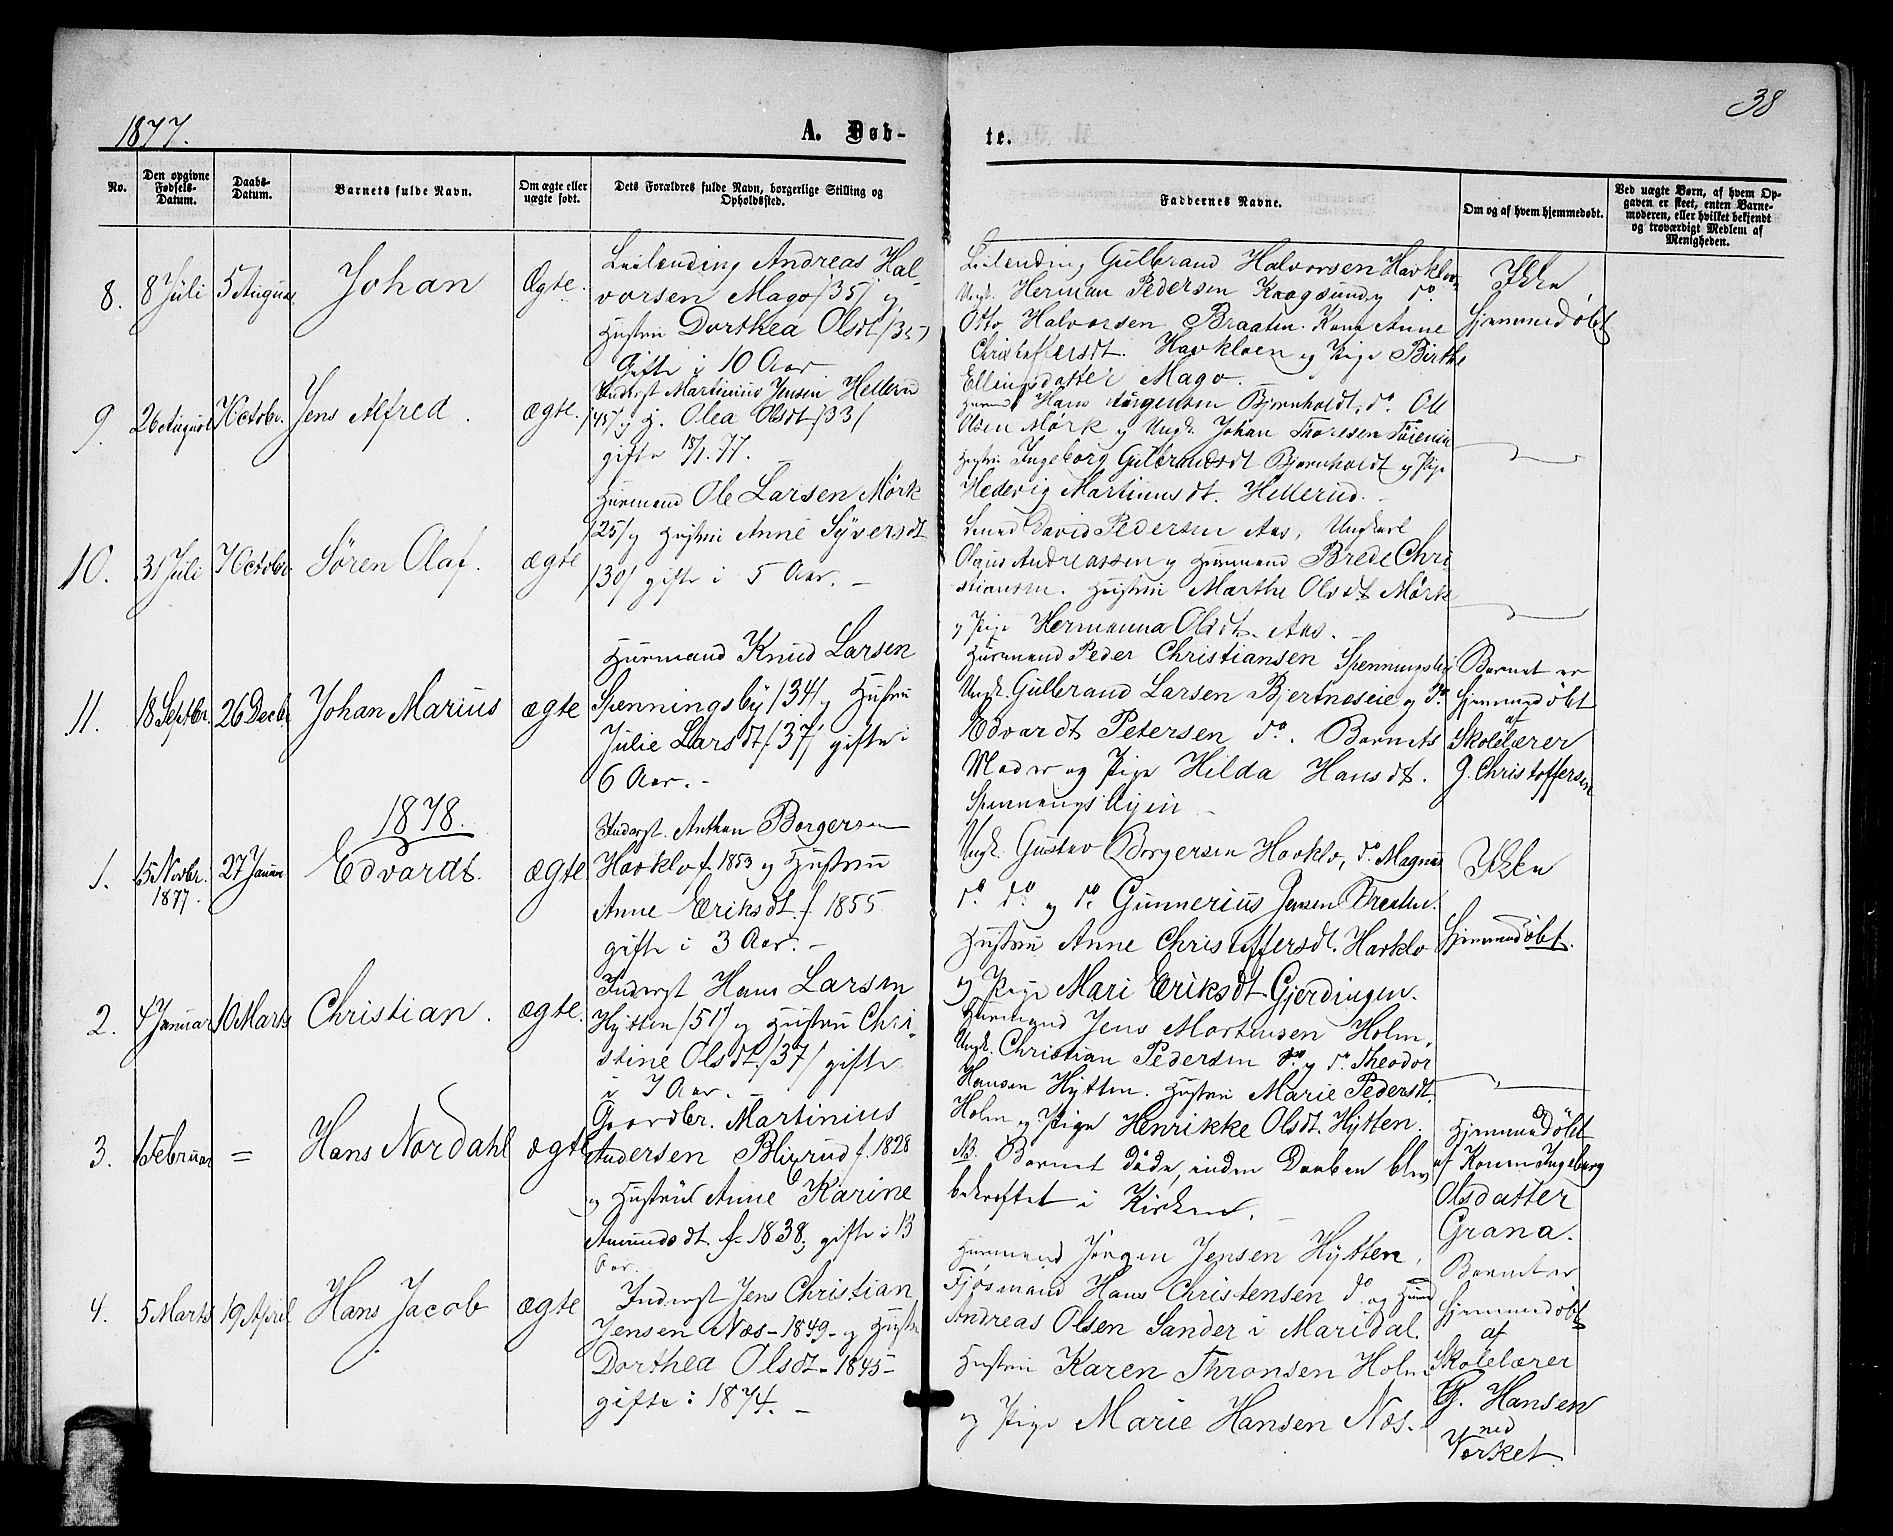 1877.
A. Døb-
te.
38
No.
Den opgivne Fødsels-Datum.
Daabs-Datum.
Barnets fulde Navn.
Om ægte eller uægte født.
Dets Forældres fulde Navn, borgerlige Stilling og Opholdssted.
Faddernes Navne.
Om og af hvem hjemmedøbt.
Ved uægte Børn, af hvem Opgaven er skeet, enten Barnemoderen, eller hvilket bekjendt og troværdigt Medlem af Menigheden.
8. 8 Juli 5 August Johan Ægte.
Leilending Andreas Hal-
vorsen Mago /35/ og
Hustru Dorthea Olsdt /35/
Gifte i 10 Aar
Leilending Gulbrand Halvorsen Havklo
Ungk. Herman Pedersen do.
Otto Halvorsen Braaten. Kone Anne
Christoffersdt. Havkloen og Pige Birthe
Ellingsdatter Mago.
Ikke
hjemmedøbt
9. 26 August 7 Octobr. Jens Alfred. ægte.
Inderst Martinius Jensen Hellerud
/45/ og H. Olea Olsdt /33/
gifte 18/1. 77.
Huusmd Hans Jørgensen Bjørnholdt, do. Ole
Olsen Mørk og Ungk. Johan Thoresen
Hustru Ingeborg Gulbrandsdt Bjørnholdt og Pige
Hedevig Martinusdt. Hellerud.
10. 31 Juli 7 Octobr Søren Olaf. ægte
Huusmand Ole Larsen Mørk
/25/ og Hustru Anne Syversdt
/30/ gifte i 5 Aar. -
Smed David Pedersen Aas, Ungkarl
Olaus Andreassen og Huusmand Brede Chri-
stiansen. Hustru Marthe Olsdt Mørk
og Pige Hermanna Olsdt. Aas.
11. 18 Septbr. 26 Decbr Johan Marius ægte
Huusmand Knud Larsen
Spenningsby /34/ og Hustru
Julie Larsdt. /37/ gifte i
6 Aar. -
Huusmand Peder Christiansen Spenningsby
Ungk. Gulbrand Larsen Bjertneseie og do.
Edvardt Petersen do. Barnets
Moder og Pige Hilda Hansdt.
Spenningsbyen -
Barnet er
hjemmedøbt
af
Skolelærer
J. Christoffersen
1878.
1. 15 Novbr. 1877. 27 Januar Edvardt. ægte
Inderst. Anthon Borgersen
Havklo f. 1853 og Hustru
Anne Eriksdt. f. 1855
gifte i 3 Aar. -
Ungk. Gustav Borgersen Havklo, do. Magnus
do. do. og do. Gunnerius Jensen Braaten.
Hustru Anne Christoffersdt. Havklo
og Pige Mari Eriksdt Gjerdingen.
Ikke
hjemmedøbt.
2. 4 Januar 10 Marts Christian. ægte.
Inderst Hans Larsen
Hytten /51/ og Hustru Chri-
stine Olsdt. /37/ gifte
i 7 Aar. -
Huusmand Jens Mortensen Holm,
Ungk. Christian Pedersen do. og do. Theodor
Hansen Hytten. Hustru Marie Pedersdt.
Holm og Pige Henrikke Olsdt. Hytten.
3. 1 Februar = Hans Nordahl ægte
Gaardbr. Martinius
Andersen Blixrud f. 1828
og Hustru Anne Karine
Amundsdt. f. 1838; gifte i 13
Aar.
NB. Barnet døde, inden Daaben blev
bekræftet i Kirken. -
Hjemmedøbt
af Konen Ingeborg
Olsdatter
Grana.
4. 5 Marts 19 April Hans Jacob ægte
Inderst Jens Christian
Jensen Næs - 1849 - og Hustru
Dorthea Olsdt - 1845 -
gifte: 1874. -
Huusmand Jørgen Jensen Hytten,
Fjøsmand Hans Christensen do. og Huusmd
Andreas Olsen Sander i Maridal.
Hustru Karen Thronsen Holm
og Pige Marie Hansen Næs.
Barnet er
hjemmedøbt
af
Skolelærer
G. Hansen
ved
Værket.